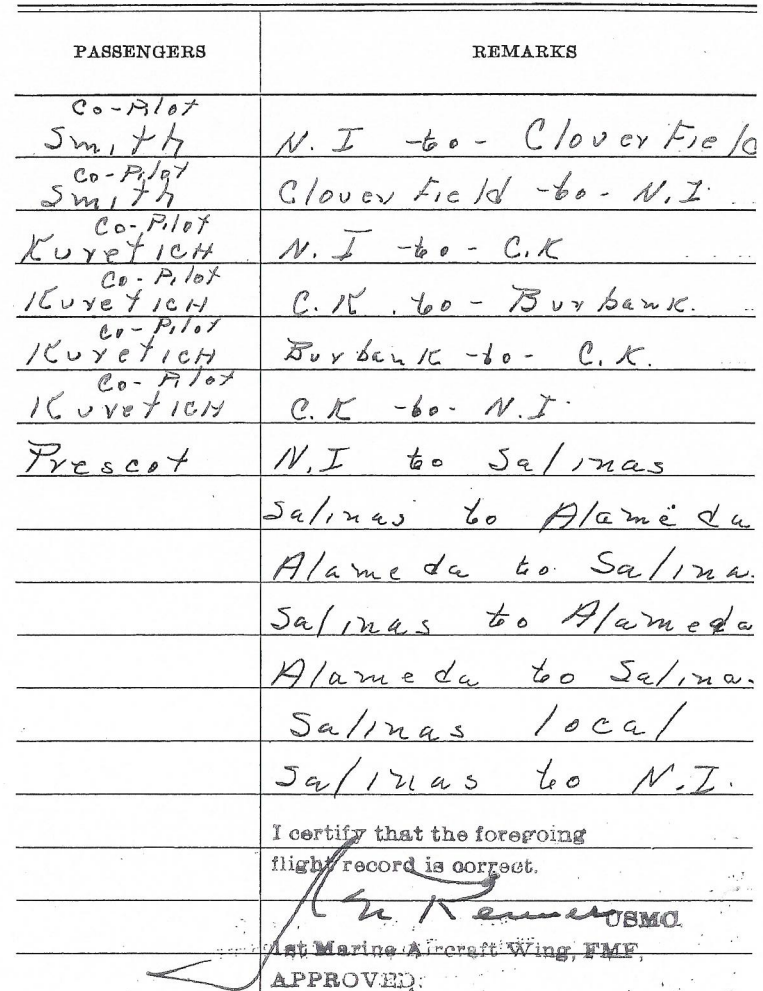 PASSENGERS REMARKS
Co-Pilot
Smith N. I -to- Clover Field
Co-Pilot
Smith Clover Field -to- N.I.
Co-Pilot
KuretICH N. I -to- C.K
Co-Pilot
KuretICH C.K. to - Burbank.
Co-Pilot
KuretICH Burbank -to- C.K.
Co-Pilot
KuretICH C.K -to- N.I.
Prescot N.I to Salinas
Salinas to Alameda
Alameda to Salina.
Salinas to Alameda
Alameda to Salina.
Salinas local
Salinas to N.I.
I certify that the foregoing
flight record is correct.
USMC
1st Marine Aircraft Wing, FMF,
APPROVED: